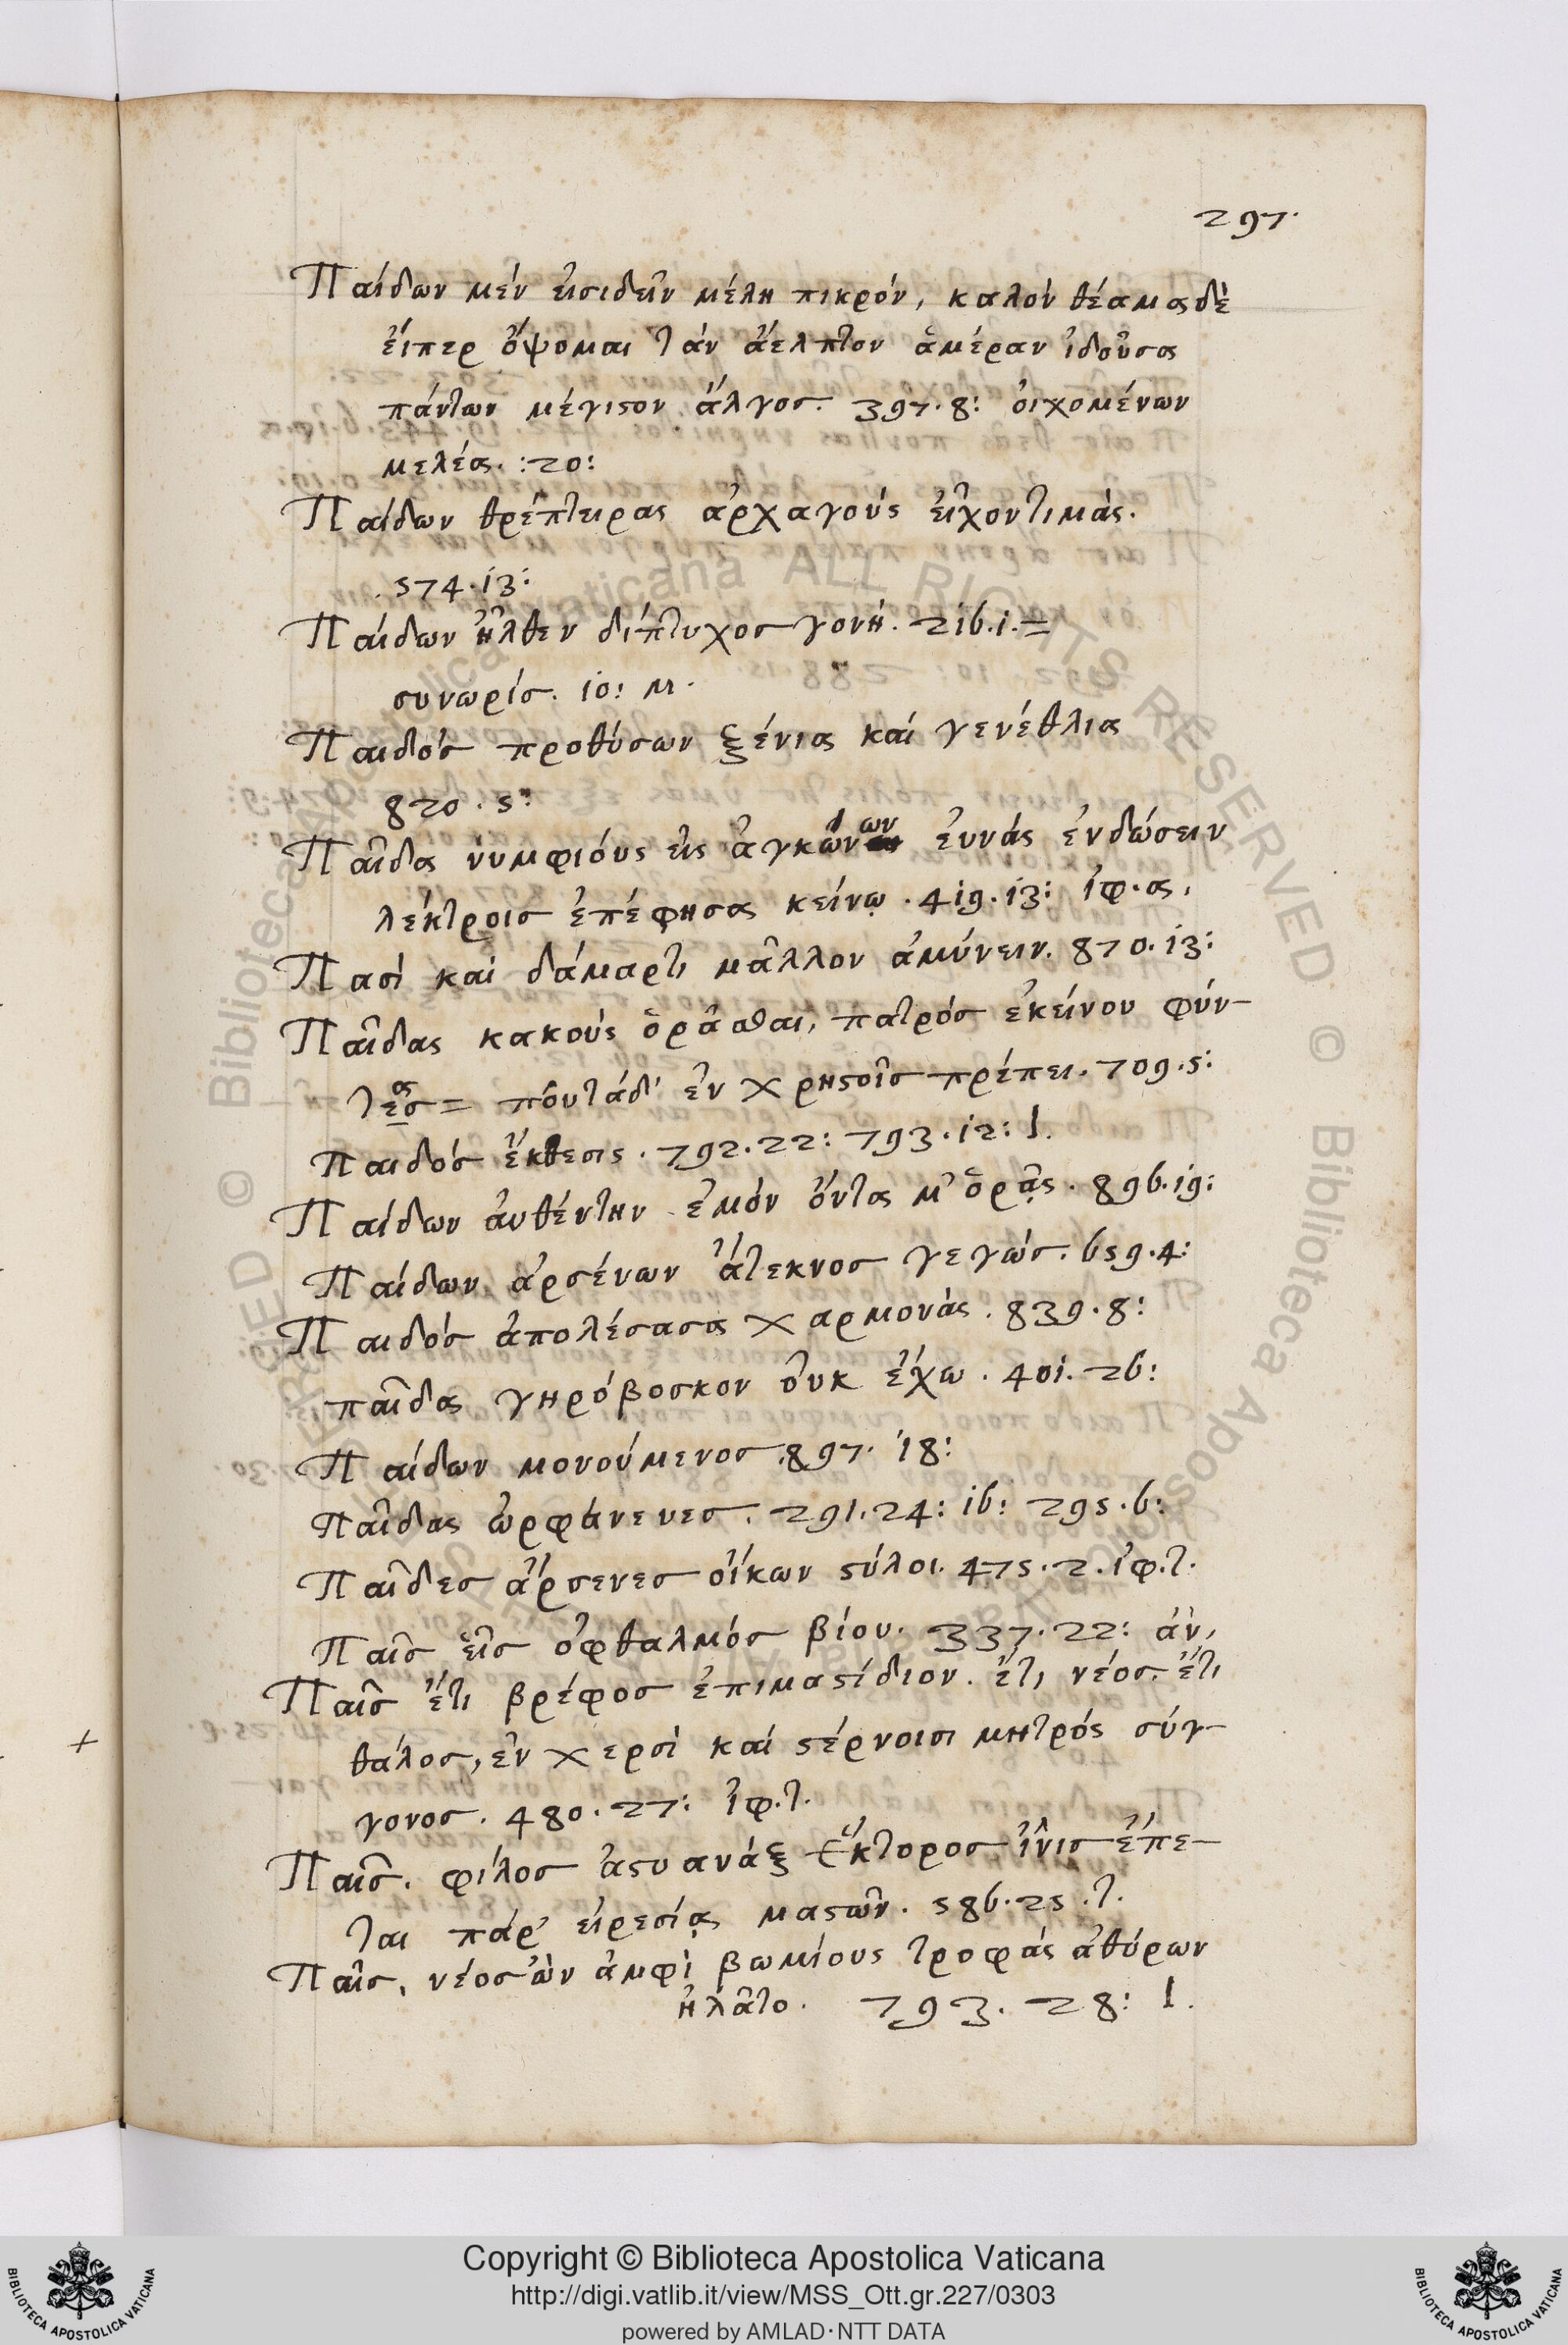 297.
Παίδων μέν εἰσιδεῖν μέλη πικρόν, καλόν θέαμα δὲ
εἴπερ ὄψομαι τάν ἄελπτον ἁμέραν ἰδοῦσα
πάντων μέγιστον ἄλγος. 397.8: οἰχομένων
μελέα. :20:
Παίδων θρέπτειρας ἀρχαγούς εἶχον τιμάς.
574.13:
Παίδων ἦλθεν δίπτυχος γονή. 216.1.=
συνωρίς. 10: μ.
Παιδός προθύσων ξένια καί γενέθλια
820.5:
Παῖδα νυμφιόυς εἰς ἀγκώνων ἐυνάς ἐνδώσειν
λέκτροις ἐπέφησα κείνῳ. 419.13: ἰφ.α.
Πασὶ καὶ δάμαρτι μᾶλλον ἀμύνειν. 870.13:
Παῖδας κακούς ὁρᾶσθαι, πατρός ἐκείνου φύν-
τας = πôυ τάδ' ἐν χρηστοῖς πρέπει. 709.5:
Παιδός ἔκθεσις. 792.22: 793.12: Ι.
Παίδων ἀυθέντην ἐμόν ὄντα μ' ὁρᾷς. 896.19:
Παίδων ἀρσένων ἄτεκνος γεγώς. 659.4:
Παιδός ἀπολέσασα χαρμονάς. 839.8:
παῖδα γηρόβοσκον ὀυκ ἔχω. 401.26:
Παίδων μονούμενος. 897. 18:
Παῖδας ὠρφάνευες. 291.24: 16: 295.6:
Παῖδες ἄρσενες οἴκων στύλοι. 475.2. ἰφ.τ.
Παῖς εἷς ὀφθαλμός βίου. 337.22: ἀν,
Παῖς ἔτι βρέφος ἐπιμαστίδιον. ἔτι νέος. ἔτι
θάλος, ἐν χερσὶ καί στέρνοισι μητρός σύγ-
γονος. 480.27: ἰφ.τ.
Παῖς. φίλος ἀστυανάξ Ἕκτορος ἶνις ἕπε-
ται πάρ' εἰρεσίᾳ μαστῶν. 586.25.τ.
Παῖς, νέος ὢν ἀμφὶ βωμίους τροφάς ἀθύρων
ἠλᾶτο. 793. 28: Ι.
+
Copyright © Biblioteca Apostolica Vaticana
http://digi.vatlib.it/view/MSS_Ott.gr.227/0303
powered by AMLAD·NTT DATA